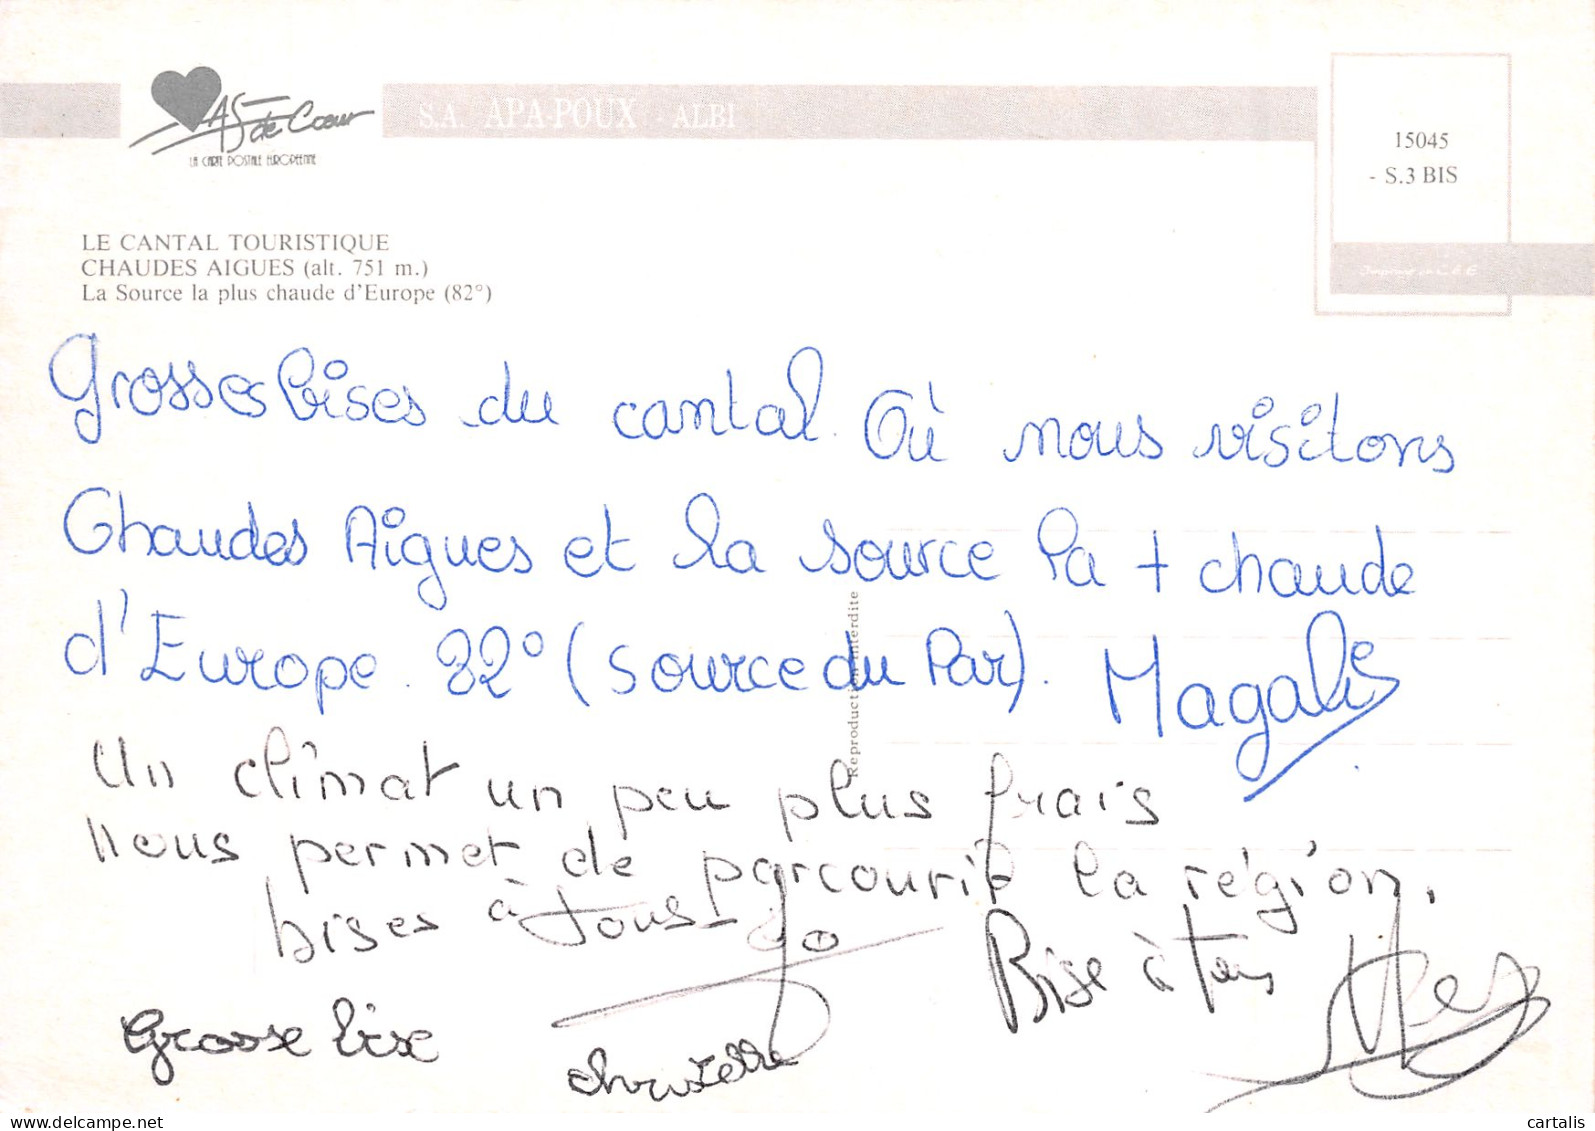 AS de Cœur
LA CARTE POSTALE EUROPEENNE
S.A. APA-POUX - ALBI
15045
- S.3 BIS
LE CANTAL TOURISTIQUE
CHAUDES AIGUES (alt. 751 m.)
La Source la plus chaude d'Europe (82°)
Grosses bises du cantal. Où nous visitons
Chaudes Aigues et la source la + chaude
d'Europe. 82° (source du Par). Magalie
Reproduction interdite
Un climat un peu plus frais
nous permet de parcourir la région.
bises à tous
Bise à tous
Grosse bise
delcampe.net
cartalis